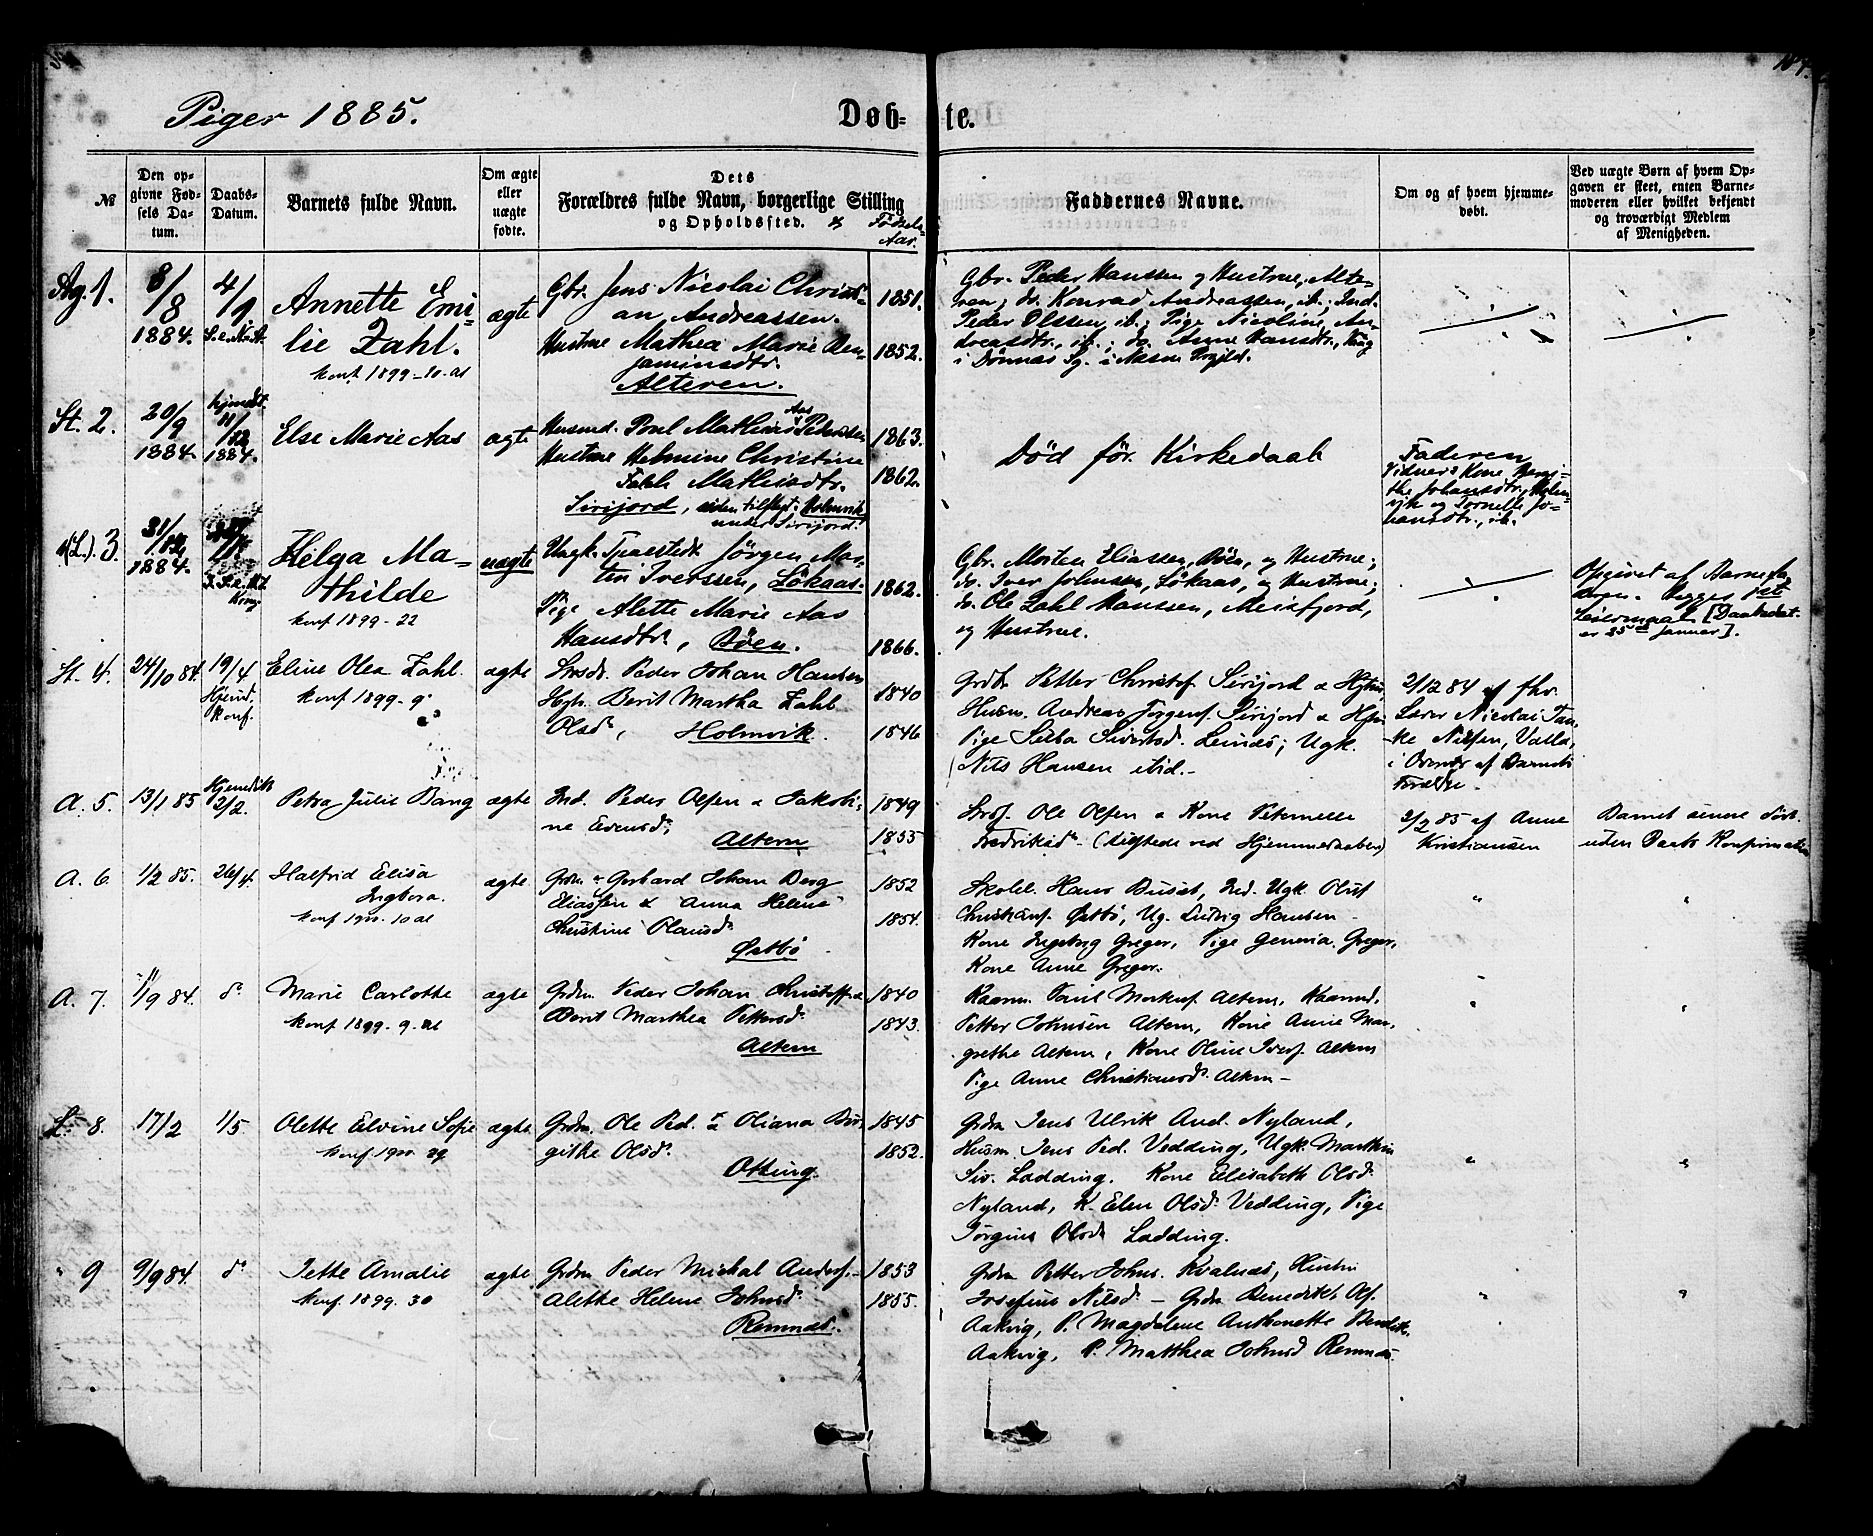 Piger 1885.
Døb-te.
№
Den opgivne Fødsels Datum.
Daabs-Datum.
Barnets fulde Navn.
Om ægte eller uægte fødte.
Dets Forældres fulde Navn, borgerlige Stilling og Opholdssted. & Fødsels-Aar.
Faddernes Navne.
Om og af hvem hjemmedøbt.
Ved uægte Børn af hvem Opgaven er skeet, enten Barnemoderen eller hvilket bekjendt og troværdigt Medlem af Menigheden.
Ag. 1.
8/8 1884.
4/9.
Annette Emi-
lie Zahl.
konf 1899-20. al
ægte
Gbr. Jens Nicolai Christi-
an Andreassen. 1851.
Hustrue Mathea Marie Ben-
jaminsdtr. 1852.
Alteren.
Gbr. Peder Hanssen og Hustrue, Alte-
ren; do. Konrad Andreassen, ib.; Ind.
Peder Olssen, ib.; Pige Nicoline An-
dreasdtr., ib.; do. Anne Hansdtr.,
i Dønnæs Sg. i Næsne Prgjld.
St. 2.
20/9 1884.
hjemdt.
11/12 1884.
Else Marie Aas
ægte
Husmd. Poul Mathias Aas Pedersen 1863.
Hustrue Helmine Christine
Mathisdtr. 1862.
Sirijord, siden tilflyt. Holmvik
under Sirijord.
Død før Kirkedaab
Faderen
Vidner: Kone
Johansdtr., Holm-
vik og Pernelle Jo-
hansdtr., ib.
3.
31/12 1884.
Helga Ma-
thilde
konf 1899-22
uægte
Ungk. Tjenestedr. Jørgen Mar-
tin Iverssen, Løkaas. 1862.
Pige Alette Marie Aas
Hansdtr., Bøen. 1866.
Gbr. Morten Eliassen, Bøen, og Hustrue;
do. Iver Johnssen, Løkaas, og Hustrue;
do. Ole Zahl Hanssen, Meisfjord,
og Hustrue.
Opgivet af Barnefa-
deren. Begges 1ste
Leiermaal. [Daabsdat.
er 25de Januar].
St. 4.
24/10 84.
19/4
Hjemd.
Konf.
Eline Olea Zahl.
konf 1899-9
ægte
Peder Johan Hansen 1840
Berit Martha Zahl
Olsd., Holmvik. 1846
Petter Christof. Sirijord & Hstru,
Husm. Andreas Jørgens. Sirijord & Hstru
Pige Selba Sivertsd. Leinæs; Ugk.
Nils Hansen ibid.-
2/12 84 af fhv.
Lærer Nicolai Tan-
ke Nilsen, Valla,
i Overvær af Barnets
Forældre.
A. 5.
13/1 85
Hjemdøbt
2/2.
Petra Julie Bang
ægte
Ind. Peder Olsen & Jakobi- 1849
ne Evensd. 1853
Altern
Ole Olsen & Kone Peternelle
Fredriksd. - (tilstede ved Hjemmedaaben)
2/2 85 af Anne
Kristiansen
Barnet senere død
uden Daabs Konfirmation
A. 6.
1/2 85.
26/4.
Halfrid Elisa
Ingbora.
konf 1900. 10 al
ægte
Grdm. Gerhard Johan Berg 1852
Eliassen & Anna Helene
Christine Olausd. 1854.
Østbø
Skolel. Hans Buset, Ind. Ugk. Oluf
Christians. Østbø, Ug. Ludvig Hansen
Kone Ingeborg Greger, Pige Geneva Greger,
Kone Anne Greger.
A. 7.
11/9 84.
do
Marie Carlotte
konf 1899. 9. al
ægte
Grdm. Peder Johan Christoff. & 1840
Berit Marthea Pettersd. 1843.
Altern
Kaarm. Paul Markus. Altern, Kaarmd.
Petter Johnsen Altern, Kone Anne Mar-
grethe Altern, Kone Oline Ivers. Altern
Pige Anne Christiansd. Altern-
8.
17/2
1/5
Olette Elvine Sofie
konf 1900. 29
ægte
Grdm. Ole Ped. & Oliana Bir- 1845
gitte Olsd. 1852.
Otting.
Grdm Jens Ulrik And. Nyland,
Husm. Jens Ped. Vedding, Ugk. Marthin
Siv. Ladding. Kone Elisabeth Olsd.
Nyland, K. Elen Olsd. Vedding, Pige
Jørgine Olsd. Ladding.
" 9
9/9 84.
do
Jette Amalie
konf. 1899. 30
ægte
Grdm Peder Mickal Anders. - 1853
Alette Helene Johnsd. 1855.
Remnæs.
Grdm Petter Johns. Kvalnæs, Hustru
Josefine Nilsd. - Grdm Benedikt Ol.
Aakvig, P. Magdalene Anthonette Bendikts.
Aakvig, P. Matthea Johnsd Remnæs.